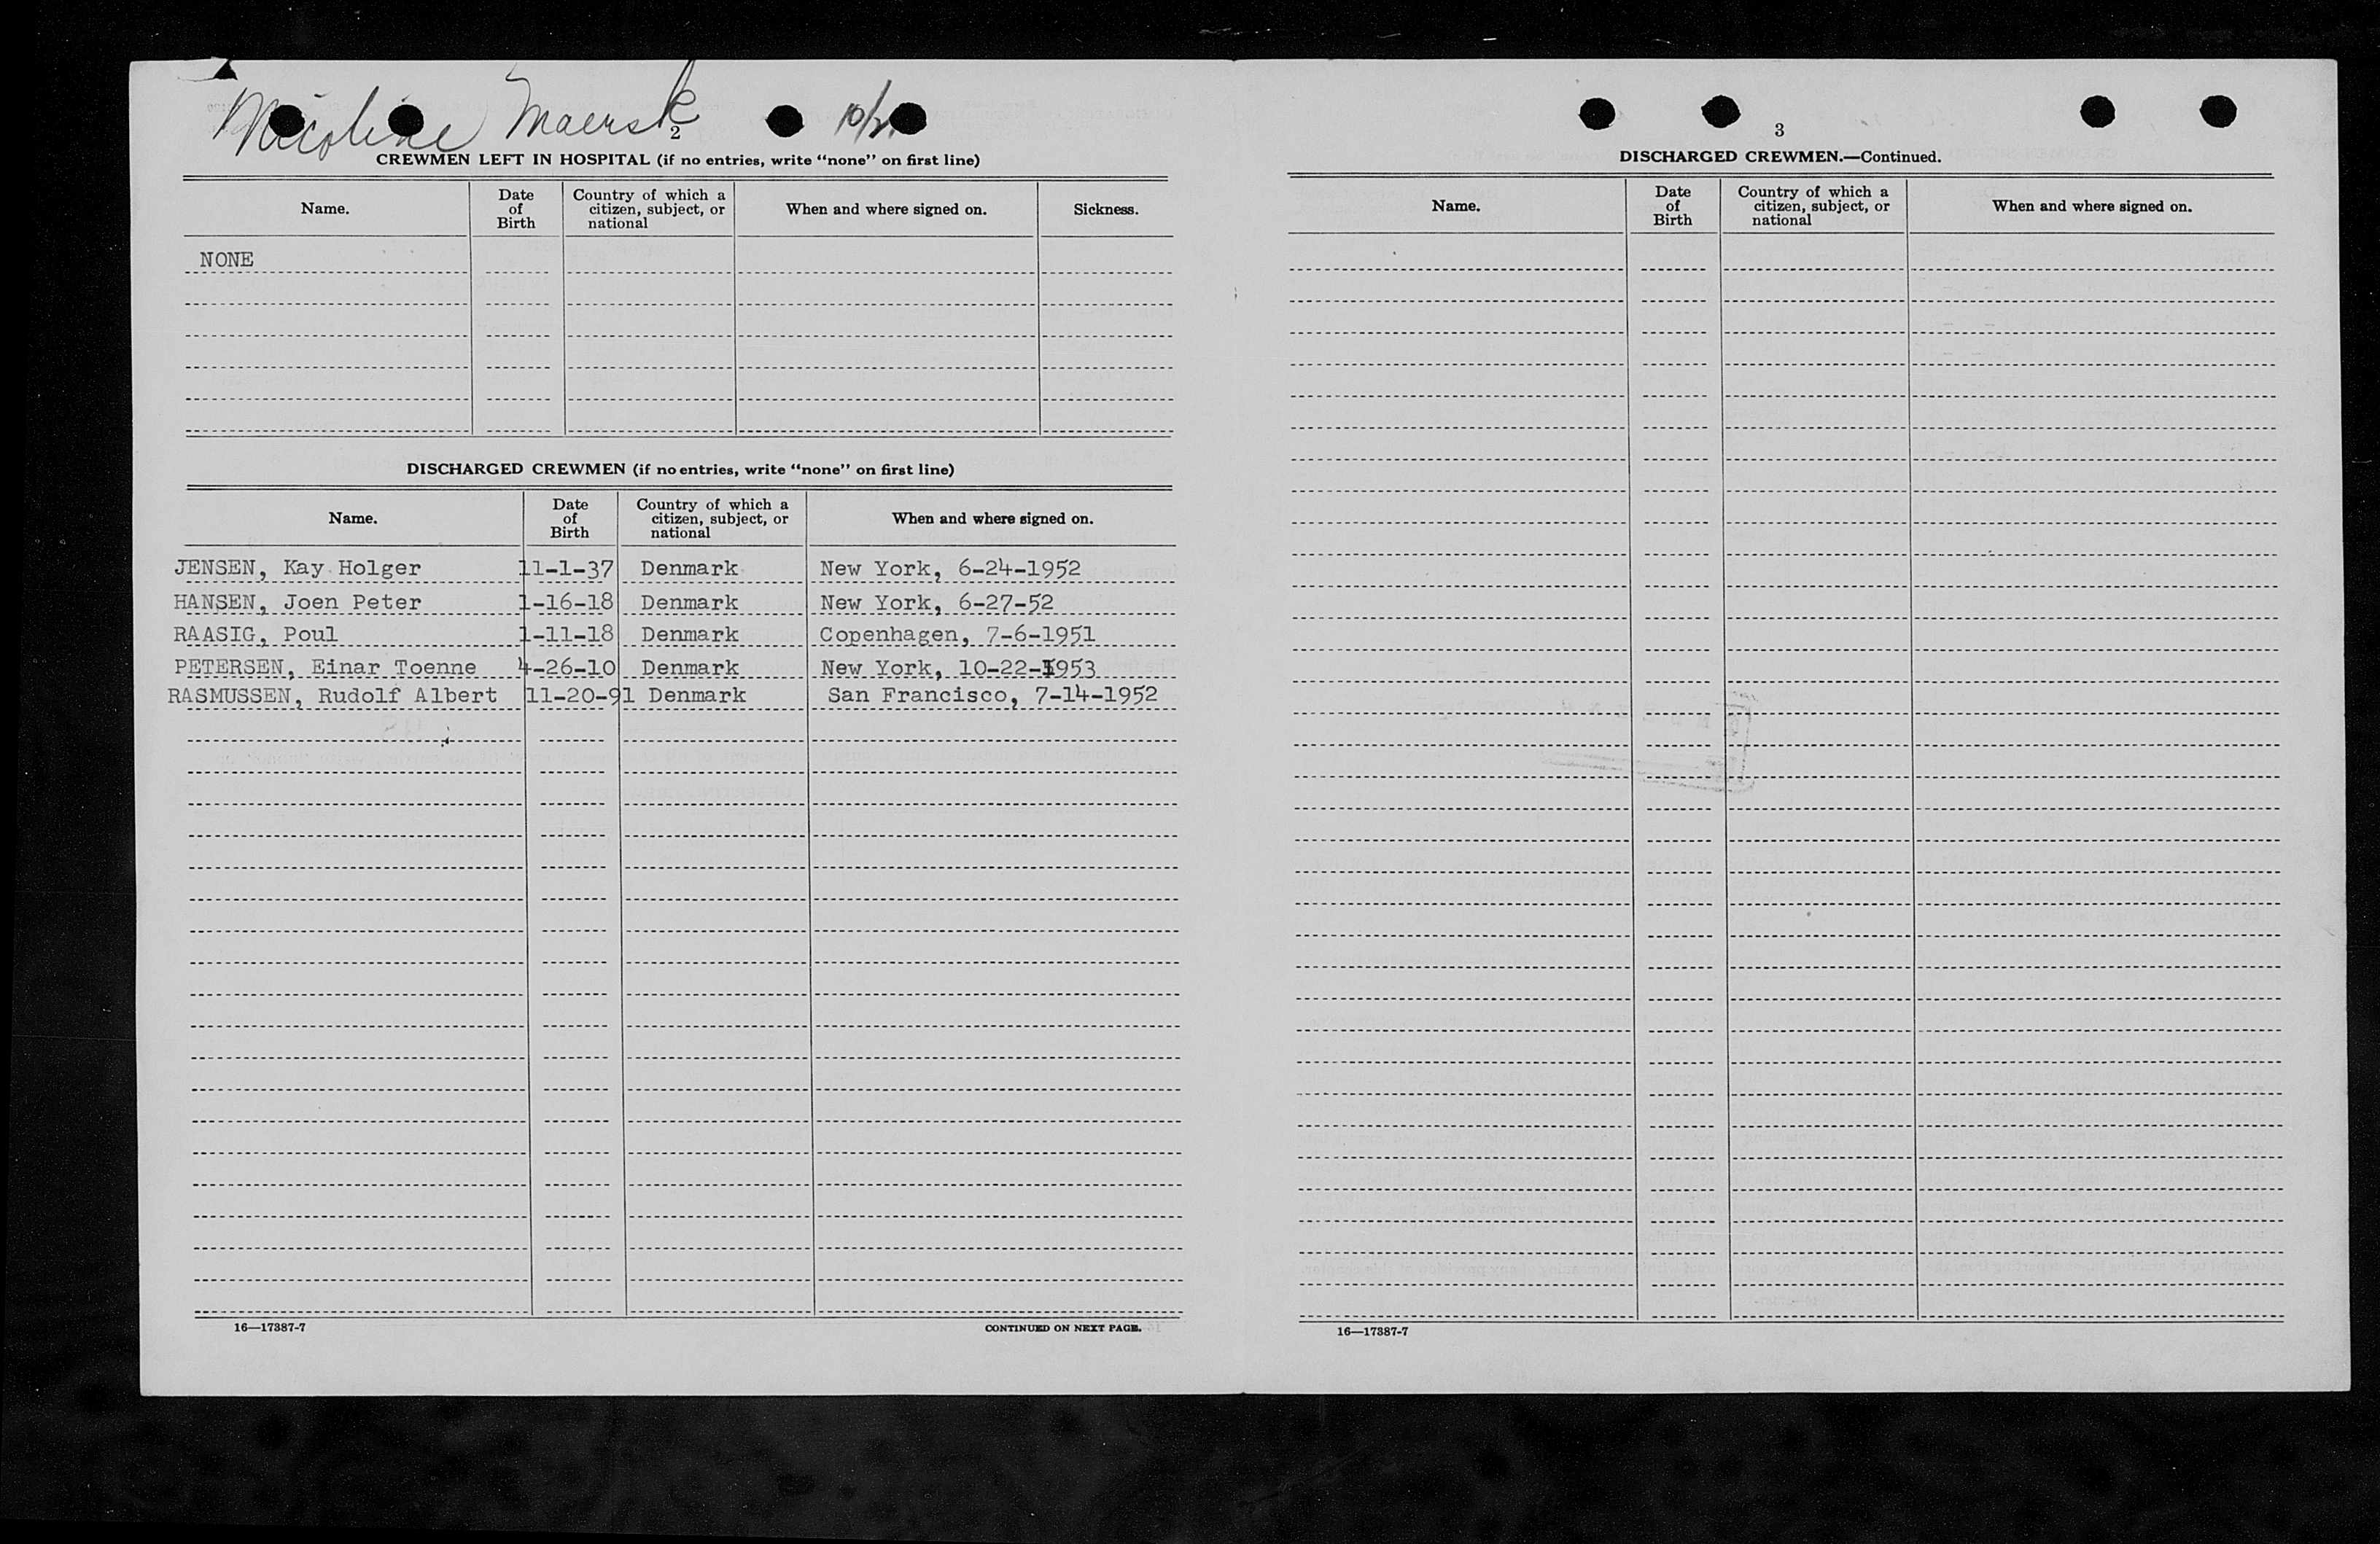 Nicoline Maersk
2
CREWMEN LEFT IN HOSPITAL (if no entries, write "none" on first line)
Name. Date of Birth Country of which a citizen, subject, or national When and where signed on. Sickness.
NONE
DISCHARGED CREWMEN (if no entries, write "none" on first line)
Name. Date of Birth Country of which a citizen, subject, or national When and where signed on.
JENSEN, Kay Holger 11-1-37 Denmark New York, 6-24-1952
HANSEN, Joen Peter 1-16-18 Denmark New York, 6-27-52
RAASIG, Poul 1-11-18 Denmark Copenhagen, 7-6-1951
PETERSEN, Einar Toenne 4-26-10 Denmark New York, 10-22-1953
RASMUSSEN, Rudolf Albert 11-20-91 Denmark San Francisco, 7-14-1952
16—17387-7 CONTINUED ON NEXT PAGE.
3
DISCHARGED CREWMEN.—Continued.
Name. Date of Birth Country of which a citizen, subject, or national When and where signed on.
16—17387-7